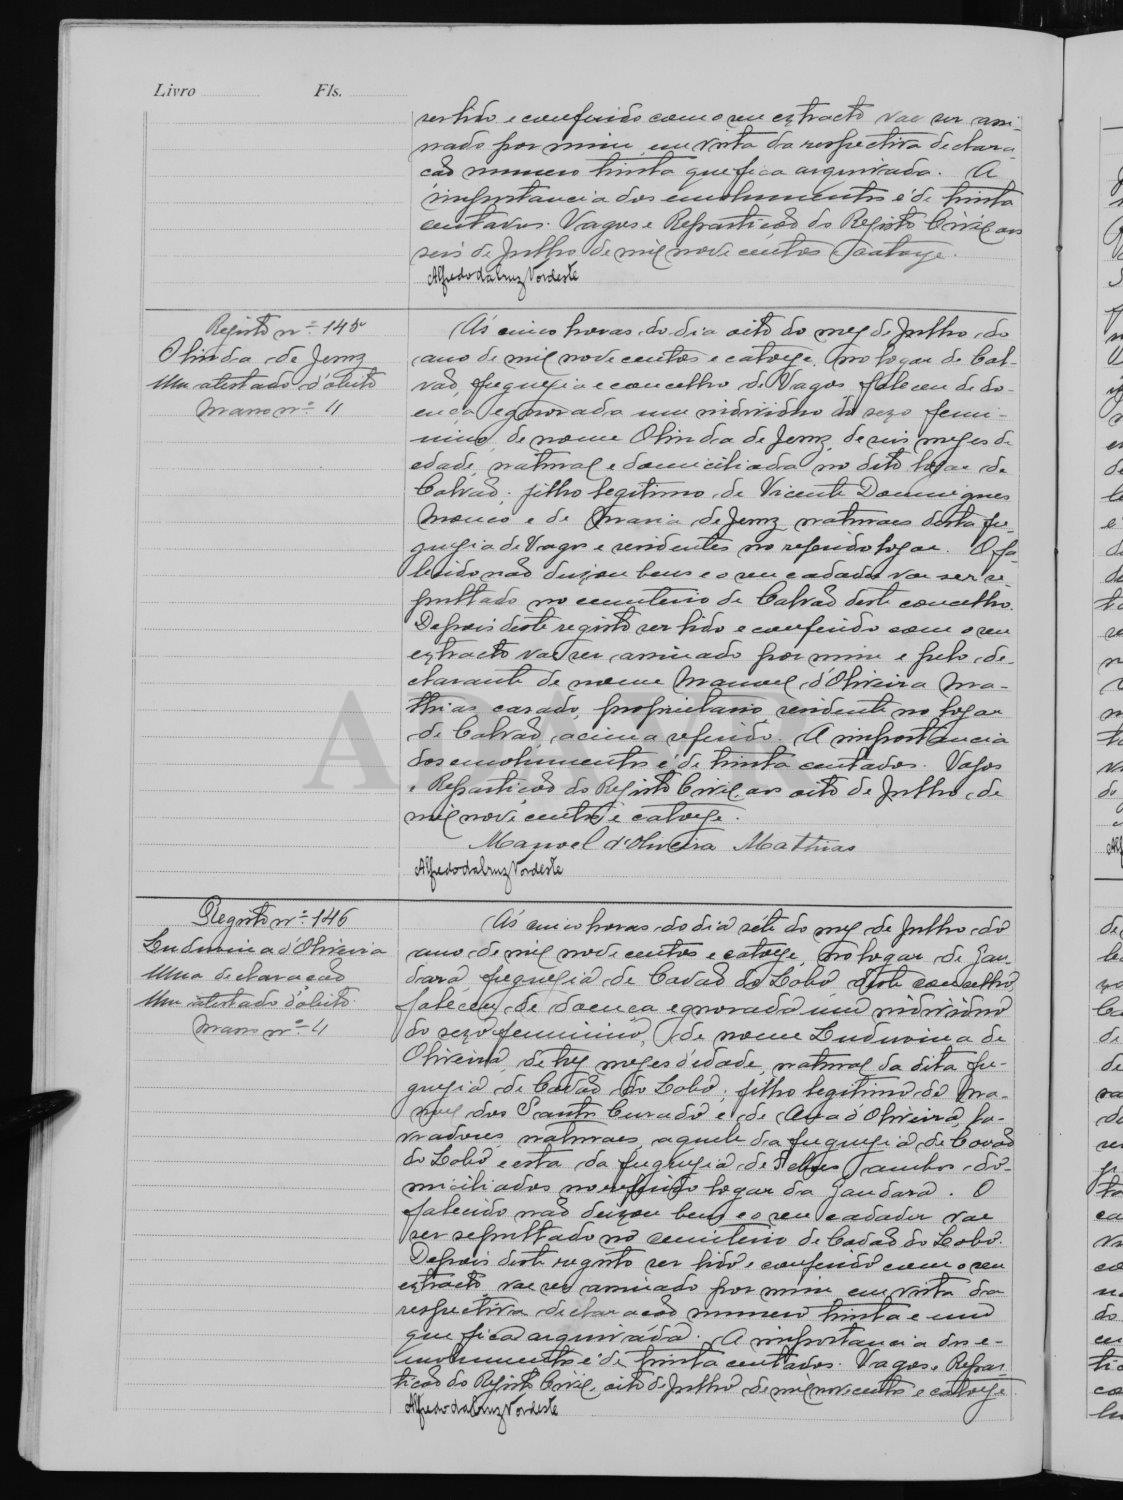 Livro Fls.
ser lido e conferido com o seu extracto vae ser assi-
nado por mim em vista da respectiva declara-
cão numero trinta que fica arquivada. A
importancia dos emolumentos é de trinta
centavos. Vagos e Repartição do Registo Civil aos
seis de Julho de mil nove centos e catorze.
Alfredo da Cruz Nordeste
Registo nº 145
Olinda de Jesus
Um atestado d'obito
Maço nº 4
Ás cinco horas do dia oito do mez de Julho do
ano de mil nove centos e catorze, no logar de Cal-
vão, freguezia e concelho de Vagos faleceu de do-
ença egnorada um individuo do sexo femi-
nino de nome Olinda de Jesus, de seis mezes de
edade, natural e domiciliada no dito logar de
Calvão, filho legitimo de Vicente Domingues
Mouco e de Maria de Jesus naturaes desta fre-
guezia de Vagos e residentes no referido logar. O fa-
lecido não deixou bens e o seu cadaver vae ser se-
pultado no cemiterio de Calvão deste concelho.
Depois deste registo ser lido e conferido com o seu
extracto vae ser assinado por mim e pelo de-
clarante de nome Manuel d'Oliveira Ma-
thias, casado, proprietario, residente no logar
de Calvão, acima referido. A importancia
dos emolumentos é de trinta centavos. Vagos
e Repartição do Registo Civil, aos oito de Julho de
mil nove centos e catorze.
Manoel d'Oliveira Mathias
Alfredo da Cruz Nordeste
Registo nº 146
Ludovina d'Oliveira
Uma declaração
Um atestado d'obito
Maço nº 4
Ás cinco horas do dia séte do mez de Julho do
ano de mil nove centos e catorze, no logar de Gan-
dara, freguezia de Covão do Lobo deste concelho,
faleceu de doença egnorada um individuo
do sexo feminino, de nome Ludovina de
Oliveira, de tres mezes d'edade, natural da dita fre-
guezia de Covão do Lobo, filho legitimo de Ma-
nuel dos Santos Curado e de Ana d'Oliveira, la-
vradores, naturaes, aquele da freguezia de Covão
do Lobo e esta da freguezia de Febres ambos do-
miciliados no referido logar da Gandara. O
falecido não deixou bens e o seu cadaver vae
ser sepultado no cemiterio de Covão do Lobo.
Depois deste registo ser lido e conferido com o seu
extracto vae ser assinado por mim em vista da
respectiva declaração numero trinta e um
que fica arquivada. A importancia dos e-
molumentos é de trinta centavos. Vagos e Repar-
tição do Registo Civil, oito de Julho de mil nove centos e catorze.
Alfredo da Cruz Nordeste